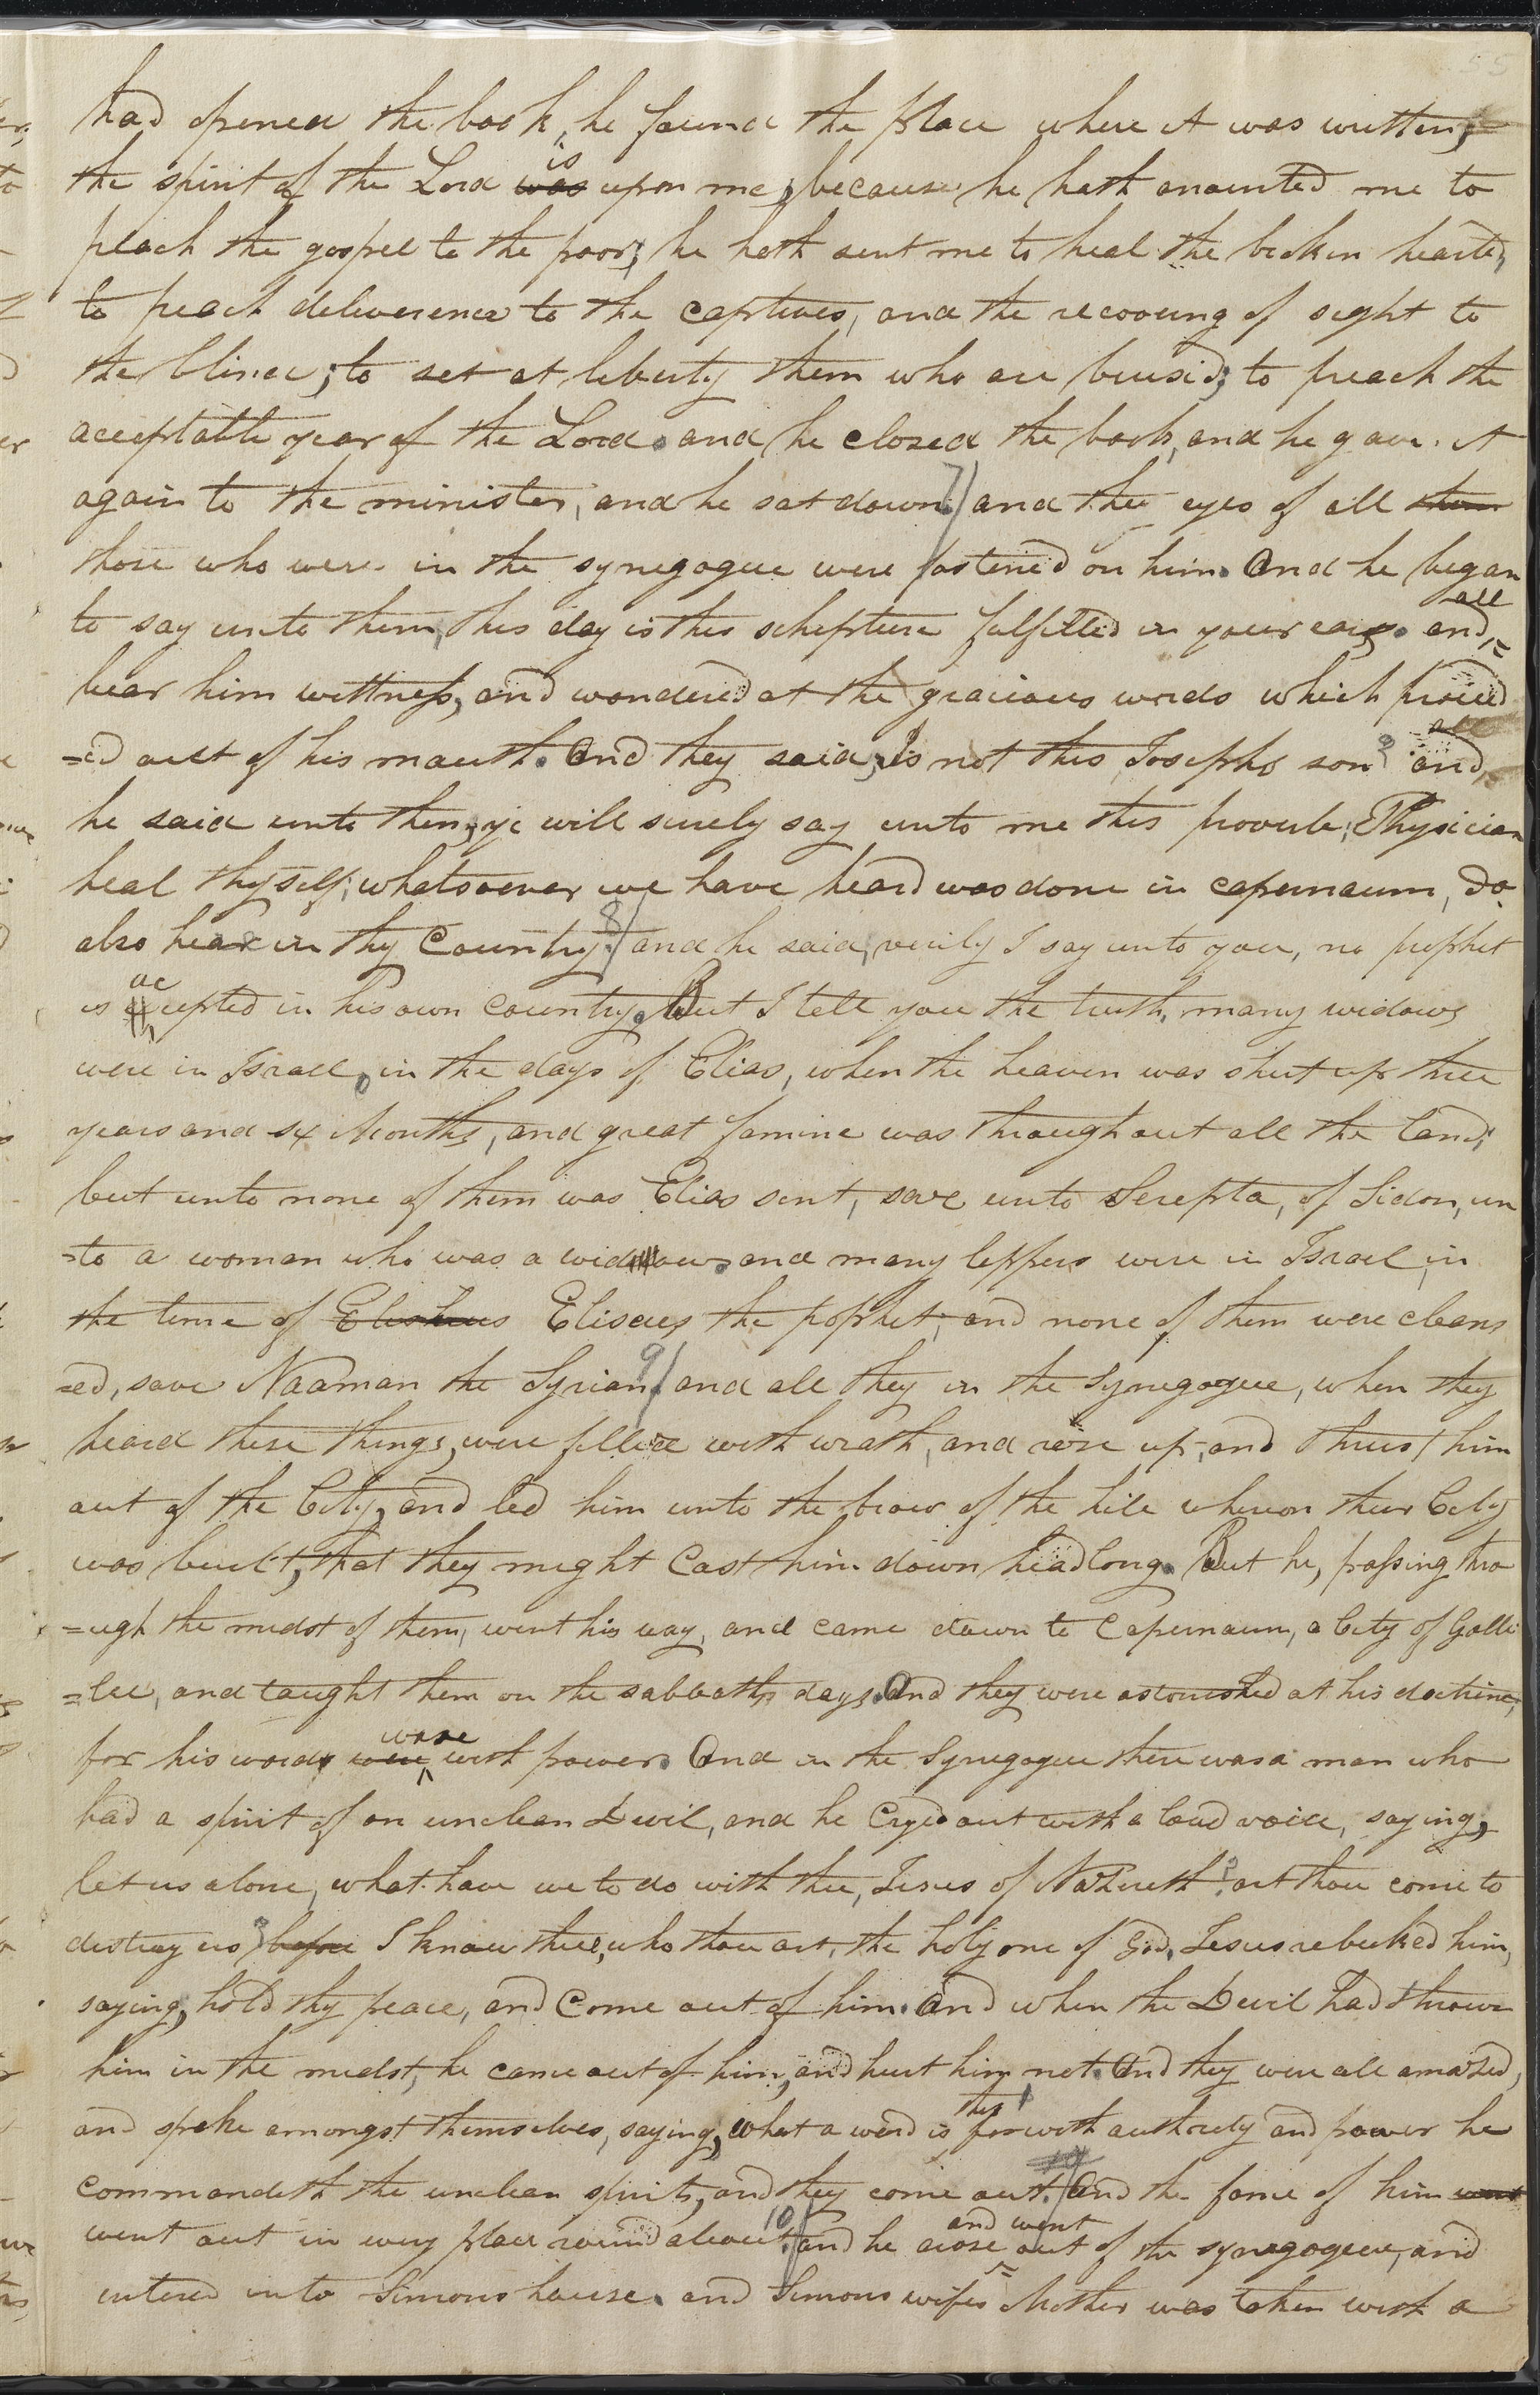 55
had opened the book, he found the place where it was written;
the spirit of the Lord was is upon me, because he hath anointed me to
preach the gospel to the poor; he hath sent me to heal the broken hearted,
to preach deliverence to the captives, and the recovering of sight to
the blind; to set at liberty them who are bruised; to preach the
acceptable year of the Lord. and he closed the book, and he gave it
again to the minister, and he sat down. 7/ and the eyes of all them
those who were in the synegogue were fastened on him. And he began
to say unto them, this day is this schripture fulfilled in your ears. and all
bear him wittness, and wondered at the gracious words which proceed
=ed out of his mouth. And they said, Is not this Josephs son? and all
he said unto them, ye will surely say unto me this proverb; Physician
heal thyself; whatsoever we have heard was done in capernaum, do
also hear in thy Country. 8/ and he said, verily I say unto you, no prophet
is accepted in his own country. But I tell you the truth, many widows
were in Israel, in the days of Elias, when the heaven was shut up three
years and six Months, and great famine was throughout all the land;
but unto none of them was Elias sent, save unto Serepta, of Sidon, un
=to a woman who was a widow. and many leppers were in Israel, in
the time of Elisheus Eliseus the prophet; and none of them were cleans
=ed, save Naaman the Syrian. 9/ and all they in the Synegogue, when they
heard these things, were filled with wrath, and rose up, and thrust him
out of the City, and led him unto the brow of the hill whereon their City
was built, that they might Cast him down headlong. But he, passing thro
=ugh the midst of them, went his way, and came down to Capernaum, a City of Galli
=lee, and taught them on the sabbath days. And they were astonished at his doctrine,
for his words were ware with power. And in the Synegogue there was a man who
had a spirit of an unclean Devil, and he Cryed out with a loud voice, saying,
let us alone, what have we to do with thee, Jesus of NaZereth? art thou come to
destroy us? before I know thee, who thou art, the holy one of God. Jesus rebuked him,
saying, hold thy peace, and Come out of him. And when the Devil had thrown
him in the midst, he came out of him, and hurt him not. And they were all amaZed,
and spake amongst themselves, saying, What a word is this for with authrity and power he
commandeth the unclean spirits, and they come out. And the fame of him went
went out in every place round about. 10/ and he arose and went out of the synagogue, and
entered into Simons house. and Simons wifes Mother was taken with a